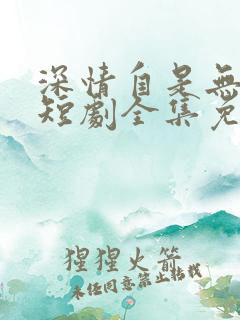 深情自是無
短劇全集免
猩猩火箭
未经同意禁止转载